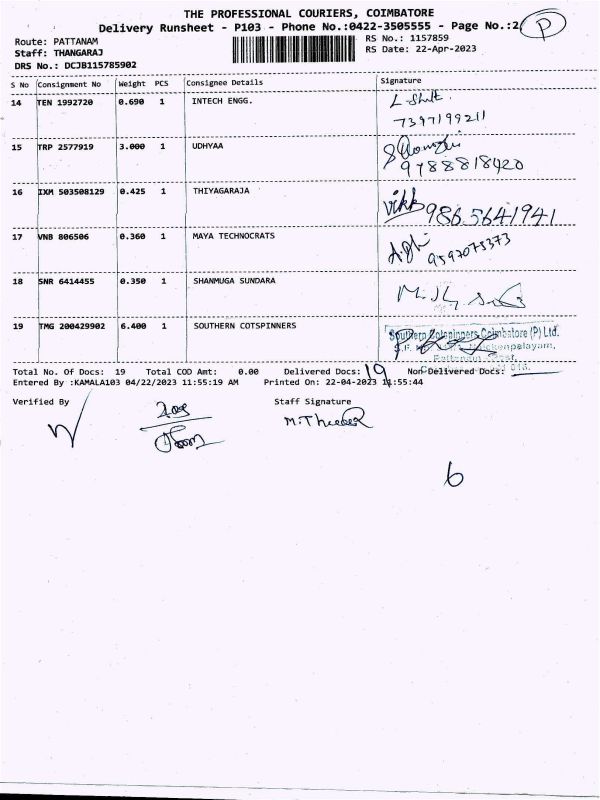 THE PROFESSIONAL COURIERS, COIMBATORE
Delivery Runsheet - P103 - Phone No.:0422-3505555 - Page No.:2
P
Route: PATTANAM
RS No.: 1157859
Staff: THANGARAJ
RS Date: 22-Apr-2023
DRS No.: DCJB115785902
S No Consignment No Weight PCS Consignee Details Signature
14 TEN 1992720 0.690 1 INTECH ENGG.
7397199211
15 TRP 2577919 3.000 1 UDHYAA
9788818420
16 IXM 503508129 0.425 1 THIYAGARAJA
9865641941
17 VNB 806506 0.360 1 MAYA TECHNOCRATS
9597075373
18 SNR 6414455 0.350 1 SHANMUGA SUNDARA
19 TMG 200429902 6.400 1 SOUTHERN COTSPINNERS
Southern Cotspinners Coimbatore (P) Ltd.
Total No. Of Docs: 19 Total COD Amt: 0.00 Delivered Docs: 19 Non-Delivered Docs:
Entered By :KAMALA103 04/22/2023 11:55:19 AM Printed On: 22-04-2023 11:55:44
Verified By Staff Signature
6